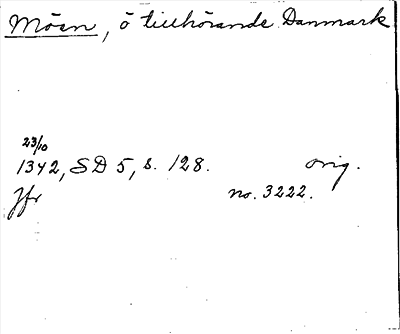 Möen, ö tillhörande Danmark
23/10
1342, SD 5, s. 128. orig.
Jfr no. 3222.